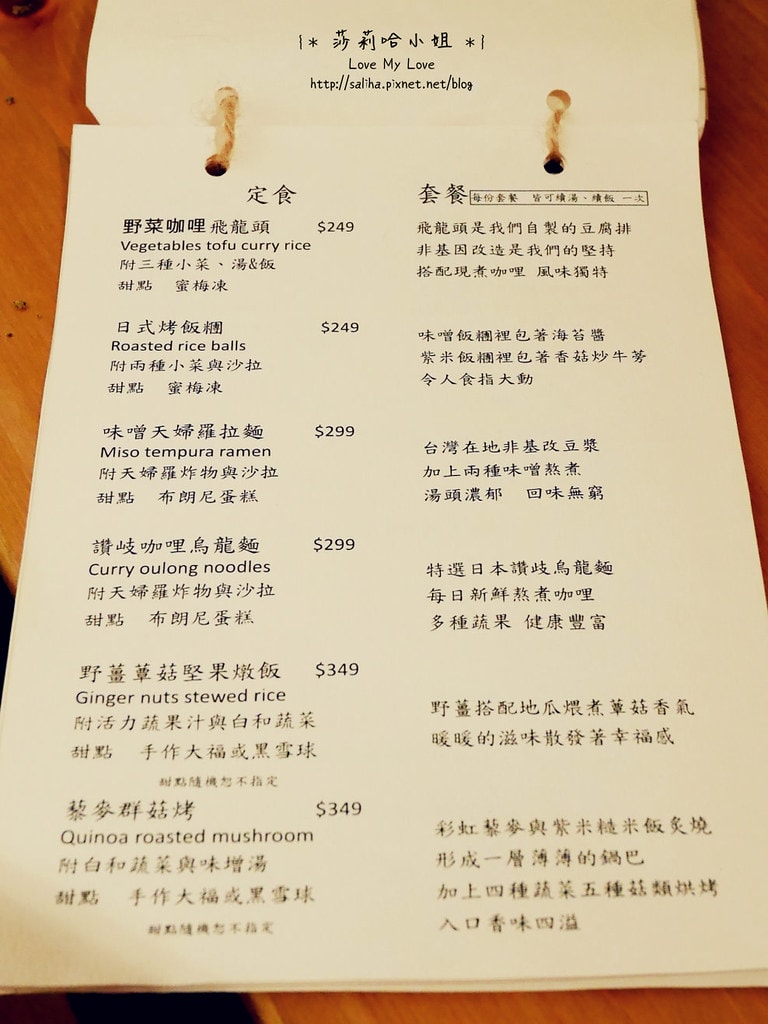 {* 莎莉哈小姐 *}
Love My Love
http://saliha.pixnet.net/blog
定食 套餐 每份套餐 皆可續湯、續飯 一次
野菜咖哩飛龍頭 $249
Vegetables tofu curry rice
附三種小菜、湯&飯
甜點 蜜梅凍
飛龍頭是我們自製的豆腐排
非基因改造是我們的堅持
搭配現煮咖哩 風味獨特
日式烤飯糰 $249
Roasted rice balls
附兩種小菜與沙拉
甜點 蜜梅凍
味噌飯糰裡包著海苔醬
紫米飯糰裡包著香菇炒牛蒡
令人食指大動
味噌天婦羅拉麵 $299
Miso tempura ramen
附天婦羅炸物與沙拉
甜點 布朗尼蛋糕
台灣在地非基改豆漿
加上兩種味噌熬煮
湯頭濃郁 回味無窮
讚岐咖哩烏龍麵 $299
Curry oulong noodles
附天婦羅炸物與沙拉
甜點 布朗尼蛋糕
特選日本讚岐烏龍麵
每日新鮮熬煮咖哩
多種蔬果 健康豐富
野薑蕈菇堅果燉飯 $349
Ginger nuts stewed rice
附活力蔬果汁與白和蔬菜
甜點 手作大福或黑雪球
甜點隨機恕不指定
野薑搭配地瓜煨煮蕈菇香氣
暖暖的滋味散發著幸福感
藜麥群菇烤 $349
Quinoa roasted mushroom
附白和蔬菜與味增湯
甜點 手作大福或黑雪球
甜點隨機恕不指定
彩虹藜麥與紫米糙米飯炙燒
形成一層薄薄的鍋巴
加上四種蔬菜五種菇類烘烤
入口香味四溢